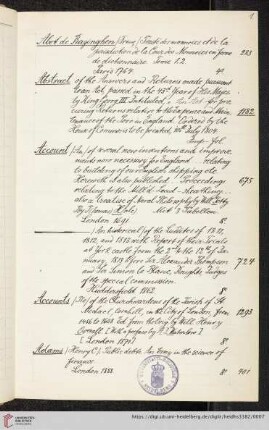 Abot de Bazinghen (Franç.) Traité des monnoies et de la
Jurisdiction de la Cour des Monnoies en forme
de dictionnaire. Tome 1.2.
Paris 1764. 4° 223
Abstract of the Answers and Returns made pursuant
to an Act, passed in the 43d Year of His Majesty
King George III. Intituled, "An Act for pro-
curing Returns relative to the Expence and Main-
tenance of the Poor in England. Ordered by the
House of Commons to be printed, 10th July 1804.
1182
Account (An) of several new inventions and improve-
ments now necessary for England relating
to building of our English Shipping etc.
675
relating to the Mill'd-Lead-Sheathing
also a Treatise of Naval Philosophy by Will. Petty
By Thomas Hale
London 1691. 8°
(An historical) of the Luddites of 1811,
1812, and 1813 with Report of their Trials
at York Castle from the 2d to the 12th of Jan-
uary, 1813 before Sir Alexander Thompson
and Sir Simon Le Blanc, Knights, Judges
of the special commission.
Huddersfield 1862 8° 724
Accounts (The) of the Churchwardens of the Parish of St.
Michael, Cornhill, in the City of London, from
1456 to 1608. Ed. by Will. Henry
Overall
[London 1871] 8° 1293
Adams (Henry C.) Public debts. An Essay in the science of
finance
London 1888. 8° 901
https://digi.ub.uni-heidelberg.de/diglit/heidhs3382/0007